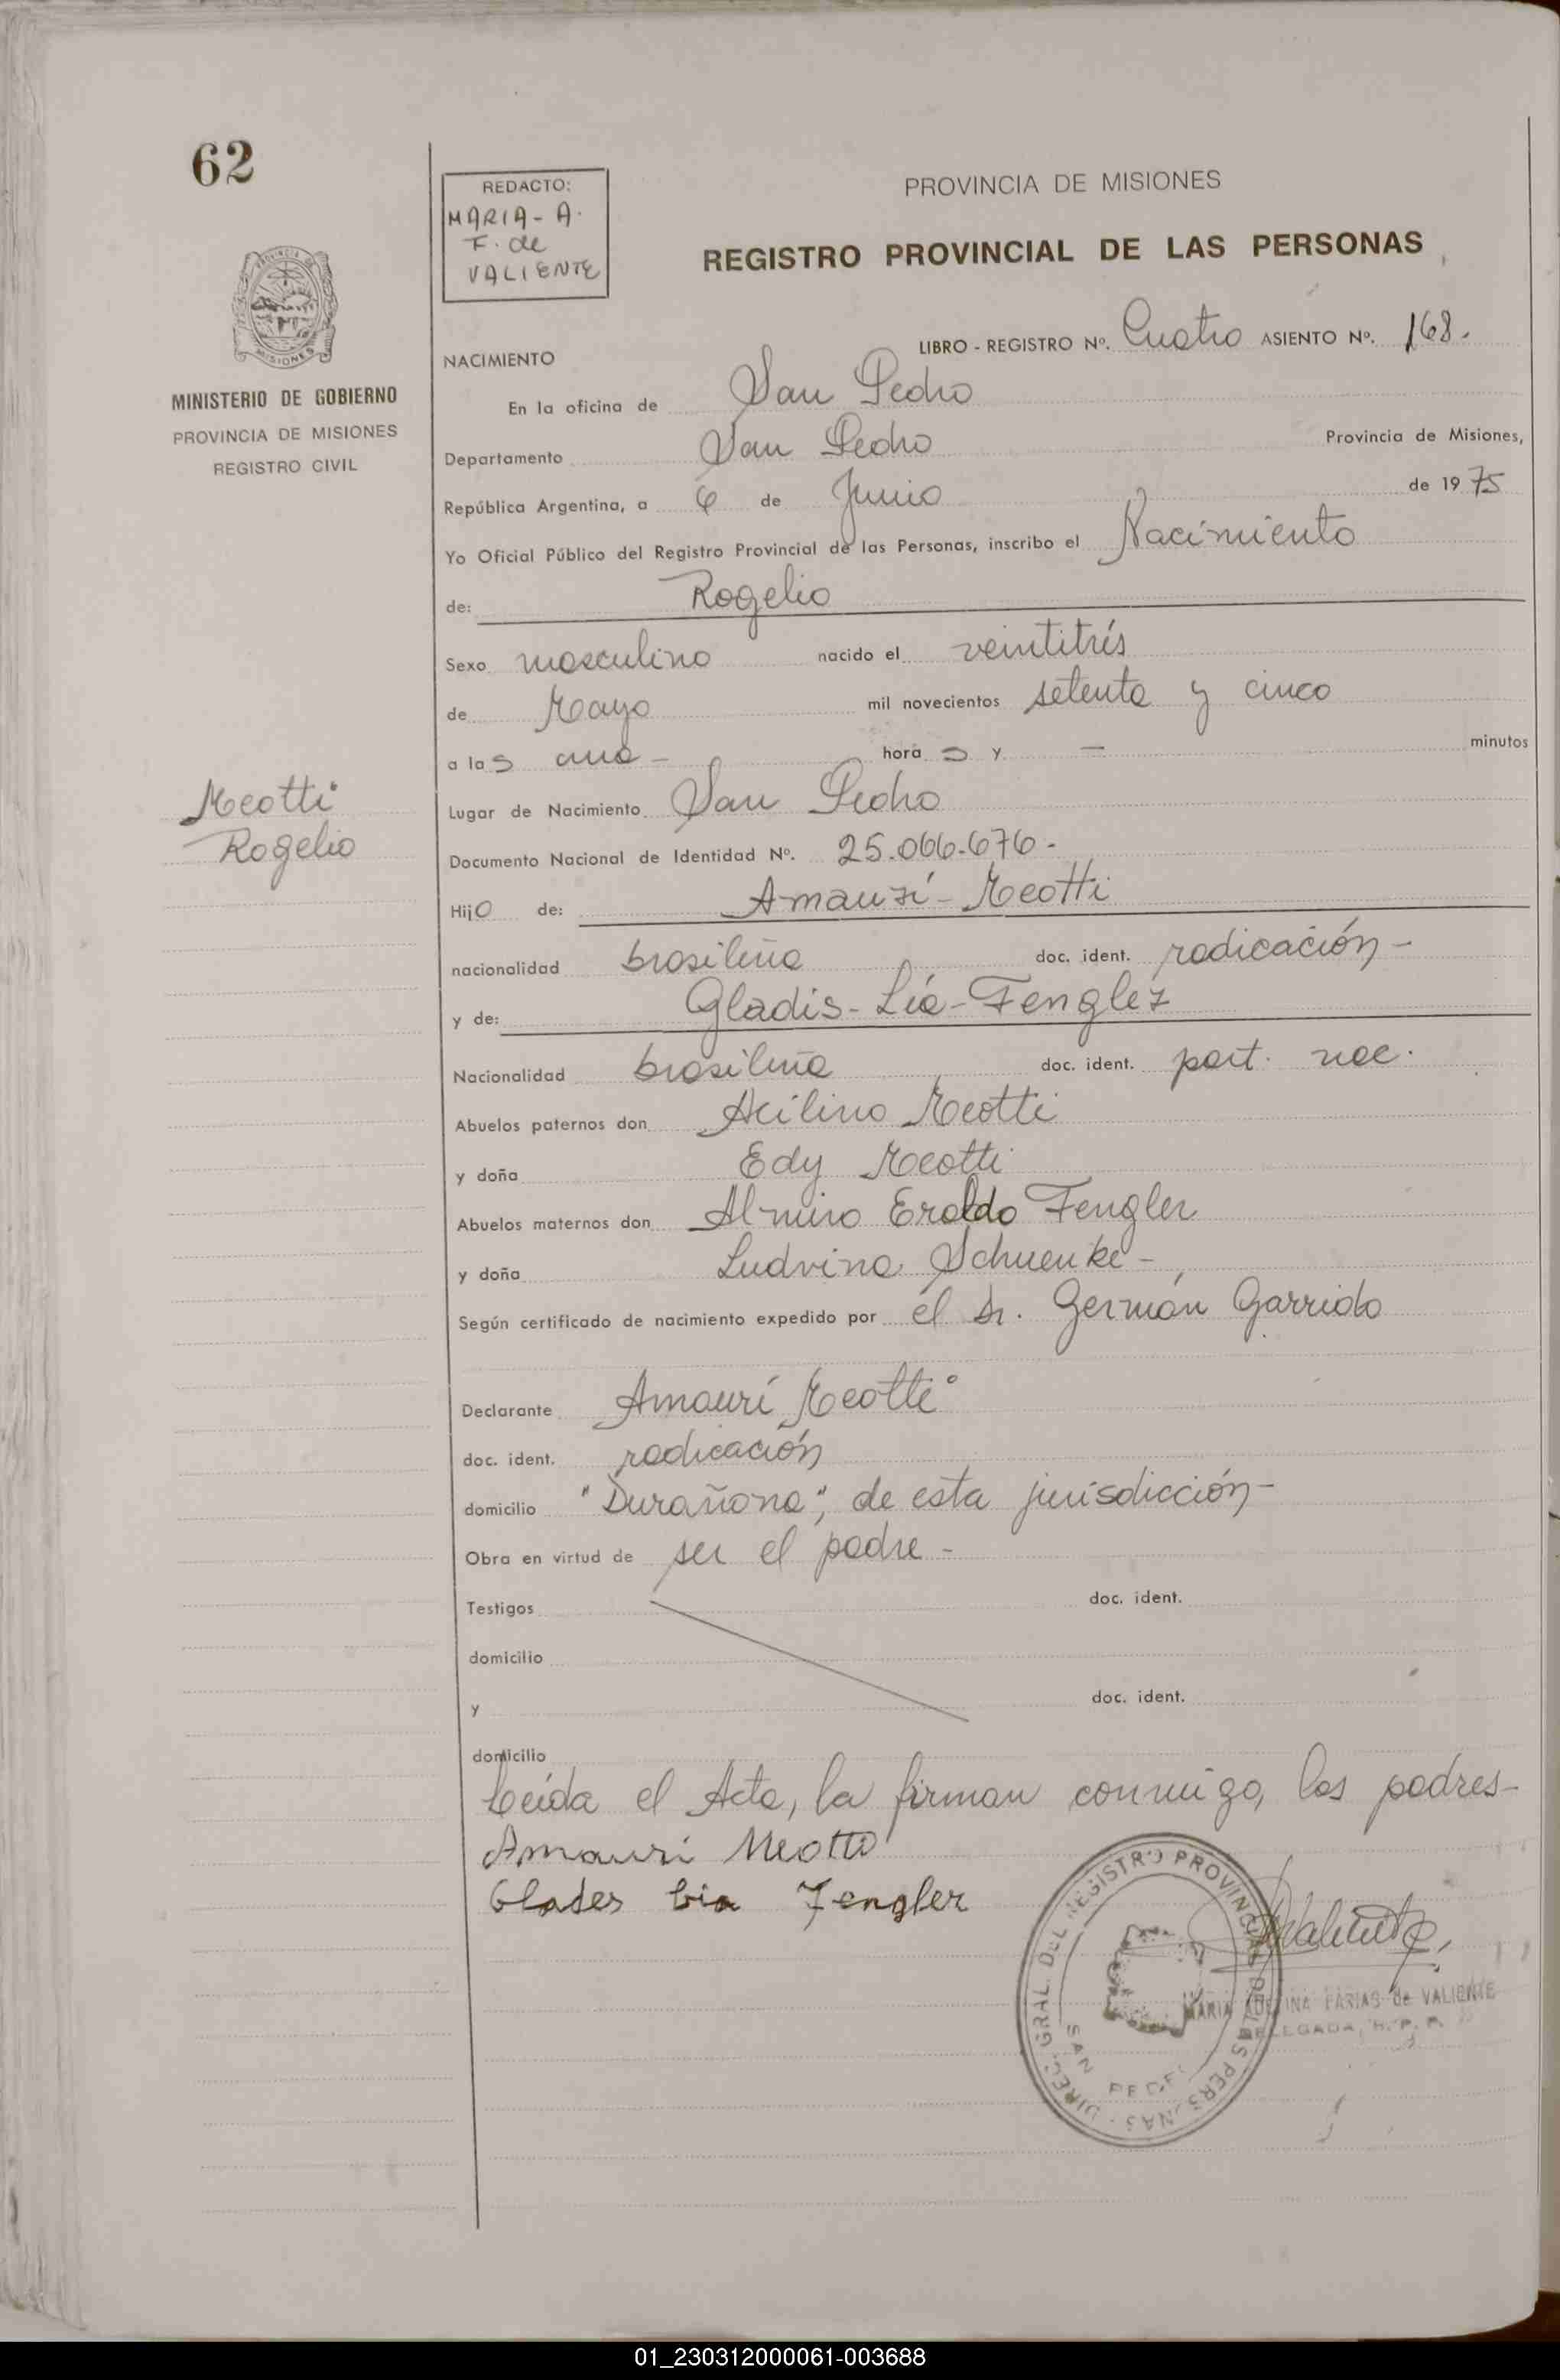 62
REDACTO:
MARIA - A.
F. de
VALIENTE
PROVINCIA DE MISIONES
REGISTRO PROVINCIAL DE LAS PERSONAS
MISIONES
MINISTERIO DE GOBIERNO
PROVINCIA DE MISIONES
REGISTRO CIVIL
LIBRO - REGISTRO Nº. Cuatro ASIENTO Nº. 168.
NACIMIENTO
En la oficina de San Pedro
Departamento San Pedro Provincia de Misiones,
República Argentina, a 6 de Junio de 1975
Yo Oficial Público del Registro Provincial de las Personas, inscribo el Nacimiento
de: Rogelio
Sexo masculino nacido el veintitrés
de Mayo mil novecientos setenta y cinco
a las hora y — minutos
Meotti
Rogelio
Lugar de Nacimiento San Pedro
Documento Nacional de Identidad Nº. 25.066.676.-
Hijo de: Amaurí - Meotti
nacionalidad brasileña doc. ident. radicación -
y de: Gladis - Lía - Fengler
Nacionalidad brasileña doc. ident. part. nac.
Abuelos paternos don Acilino Meotti
y doña Edy Meotti
Abuelos maternos don Almiro Eraldo Fengler
y doña Ludvina Schuenke -
Según certificado de nacimiento expedido por el Dr. Germán Garrido
Declarante Amaurí Meotti
doc. ident. radicación
domicilio "Durañona", de esta jurisdicción -
Obra en virtud de ser el padre -
Testigos doc. ident.
domicilio
y doc. ident.
domicilio
Leída el Acta, la firman conmigo, los padres -
Amauri Meotti
Glades Lia Fengler
Valiente
DIREC. GRAL. DEL REGISTRO PROVINCIAL DE LAS PERSONAS
SAN PEDRO
MARIA FARIAS de VALIENTE
DELEGADA, R. P. P.
01_230312000061-003688